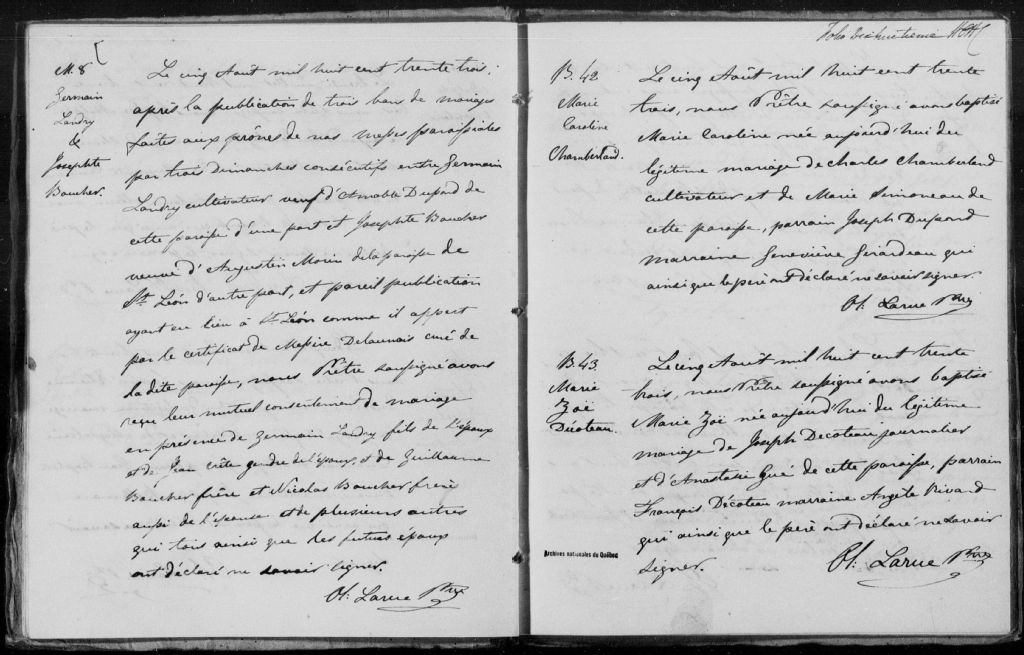 M. 8
Germain
Landry
&
Josephte
Boucher.
Le cinq Aout mil huit cent trente trois,
après la publication de trois bans de mariage
faites aux prônes de nos messes paroissiales
par trois dimanches consécutifs entre Germain
Landry cultivateur veuf d'Amable Dupond de
cette paroisse d'une part et Josephte Boucher
veuve d'Augustin Morin de la paroisse de
St. Léon d'autre part, et pareil publication
ayant eu lieu à St. Léon comme il appert
par le certificat de Messire Delaunais curé de
la dite paroisse, nous Prêtre soussigné avons
reçu leur mutuel consentement de mariage
en présence de Germain Landry fils de l'époux
et de Jean crête gendre de l'époux, et de Guillaume
Boucher frère et Nicolas Boucher frere
aussi de l'épouse et de plusieurs autres
qui tous ainsi que les futurs époux
ont déclaré ne savoir signer.
Ol. Larue Ptre
Folio Dixhuitieme
B. 42
Marie
Caroline
Chamberland.
Le cinq Août mil huit cent trente
trois, nous Prêtre soussigné avons baptisé
Marie Caroline née aujourd'hui du
légitime mariage de Charles Chamberland
cultivateur et de Marie Simoneau de
cette paroisse, parrain Joseph Dupond
marraine Geneviève Girardeau qui
ainsi que le père ont déclaré ne savoir signer.
Ol. Larue Ptre
B. 43.
Marie
Zoë
Décoteau.
Le cinq Aout mil huit cent trente
trois, nous Prêtre soussigné avons baptisé
Marie Zoë née aujourd'hui du légitime
mariage de Joseph Decoteau journalier
et d'Anastasie Gué de cette paroisse, parrain
François Décoteau marraine Angèle Rivard
qui ainsi que le père ont déclaré ne savoir
signer.
Ol. Larue Ptre
Archives nationales du Québec